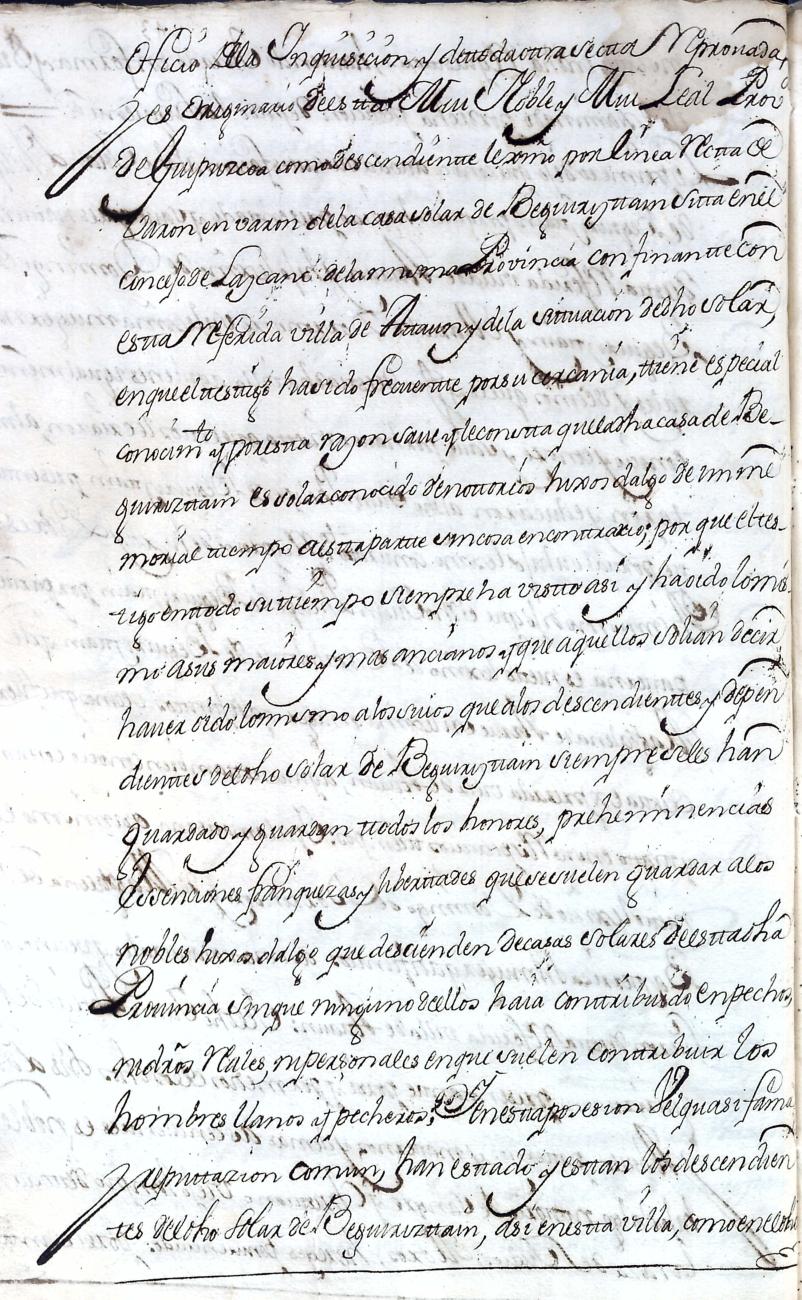 oficio de la Inquisicion, y de ttoda ottra Secta Reprovada,
y es originario de estta Mui Noble y Mui Leal Prov.ª
de Guipuzcoa como descendiente lexmo por linea Rectta de
varon en varon de la casa solar de Beguirizttain sitta en el
concejo de Lazcano de la misma Provincia confinantte con
estta Referida villa de Attaun y de la Sittuación de dho solar,
en que el ttesttigo ha sido frecuentte por su cercania, ttiene especial
conocimto y por estta razon save y le constta que la dha casa de Be-
guirizttain es solar conocido de nottorios hixos dalgo de imme
morial ttiempo a estta partte sin cosa en conttrario; por que el tes-
tigo en ttodo su ttiempo siempre ha vistto asi y ha oido lo mis-
mo a sus maiores y mas ancianos y que aquellos solian decir
haver oido lo mismo a los suios que a los descendienttes y depen
dienttes del dho solar de Beguirizttain siempre se les han
guardado y guardan ttodos los honores, preheminencias
Essenciones franquezas y liberttades que se suelen guardar a los
nobles hixos dalgo que descienden de casas solares de estta dha
Provincia sin que ninguno de ellos haia conttribuido en pechos,
ni dros Reales, ni personales en que suelen conttribuir los
hombres llanos y pecheros; Y en estta posesion vel quasi fama
y reputtazion comun, han esttado y esttan los descendien
tes del dho Solar de Beguirizttain, asi en estta villa, como en el dho